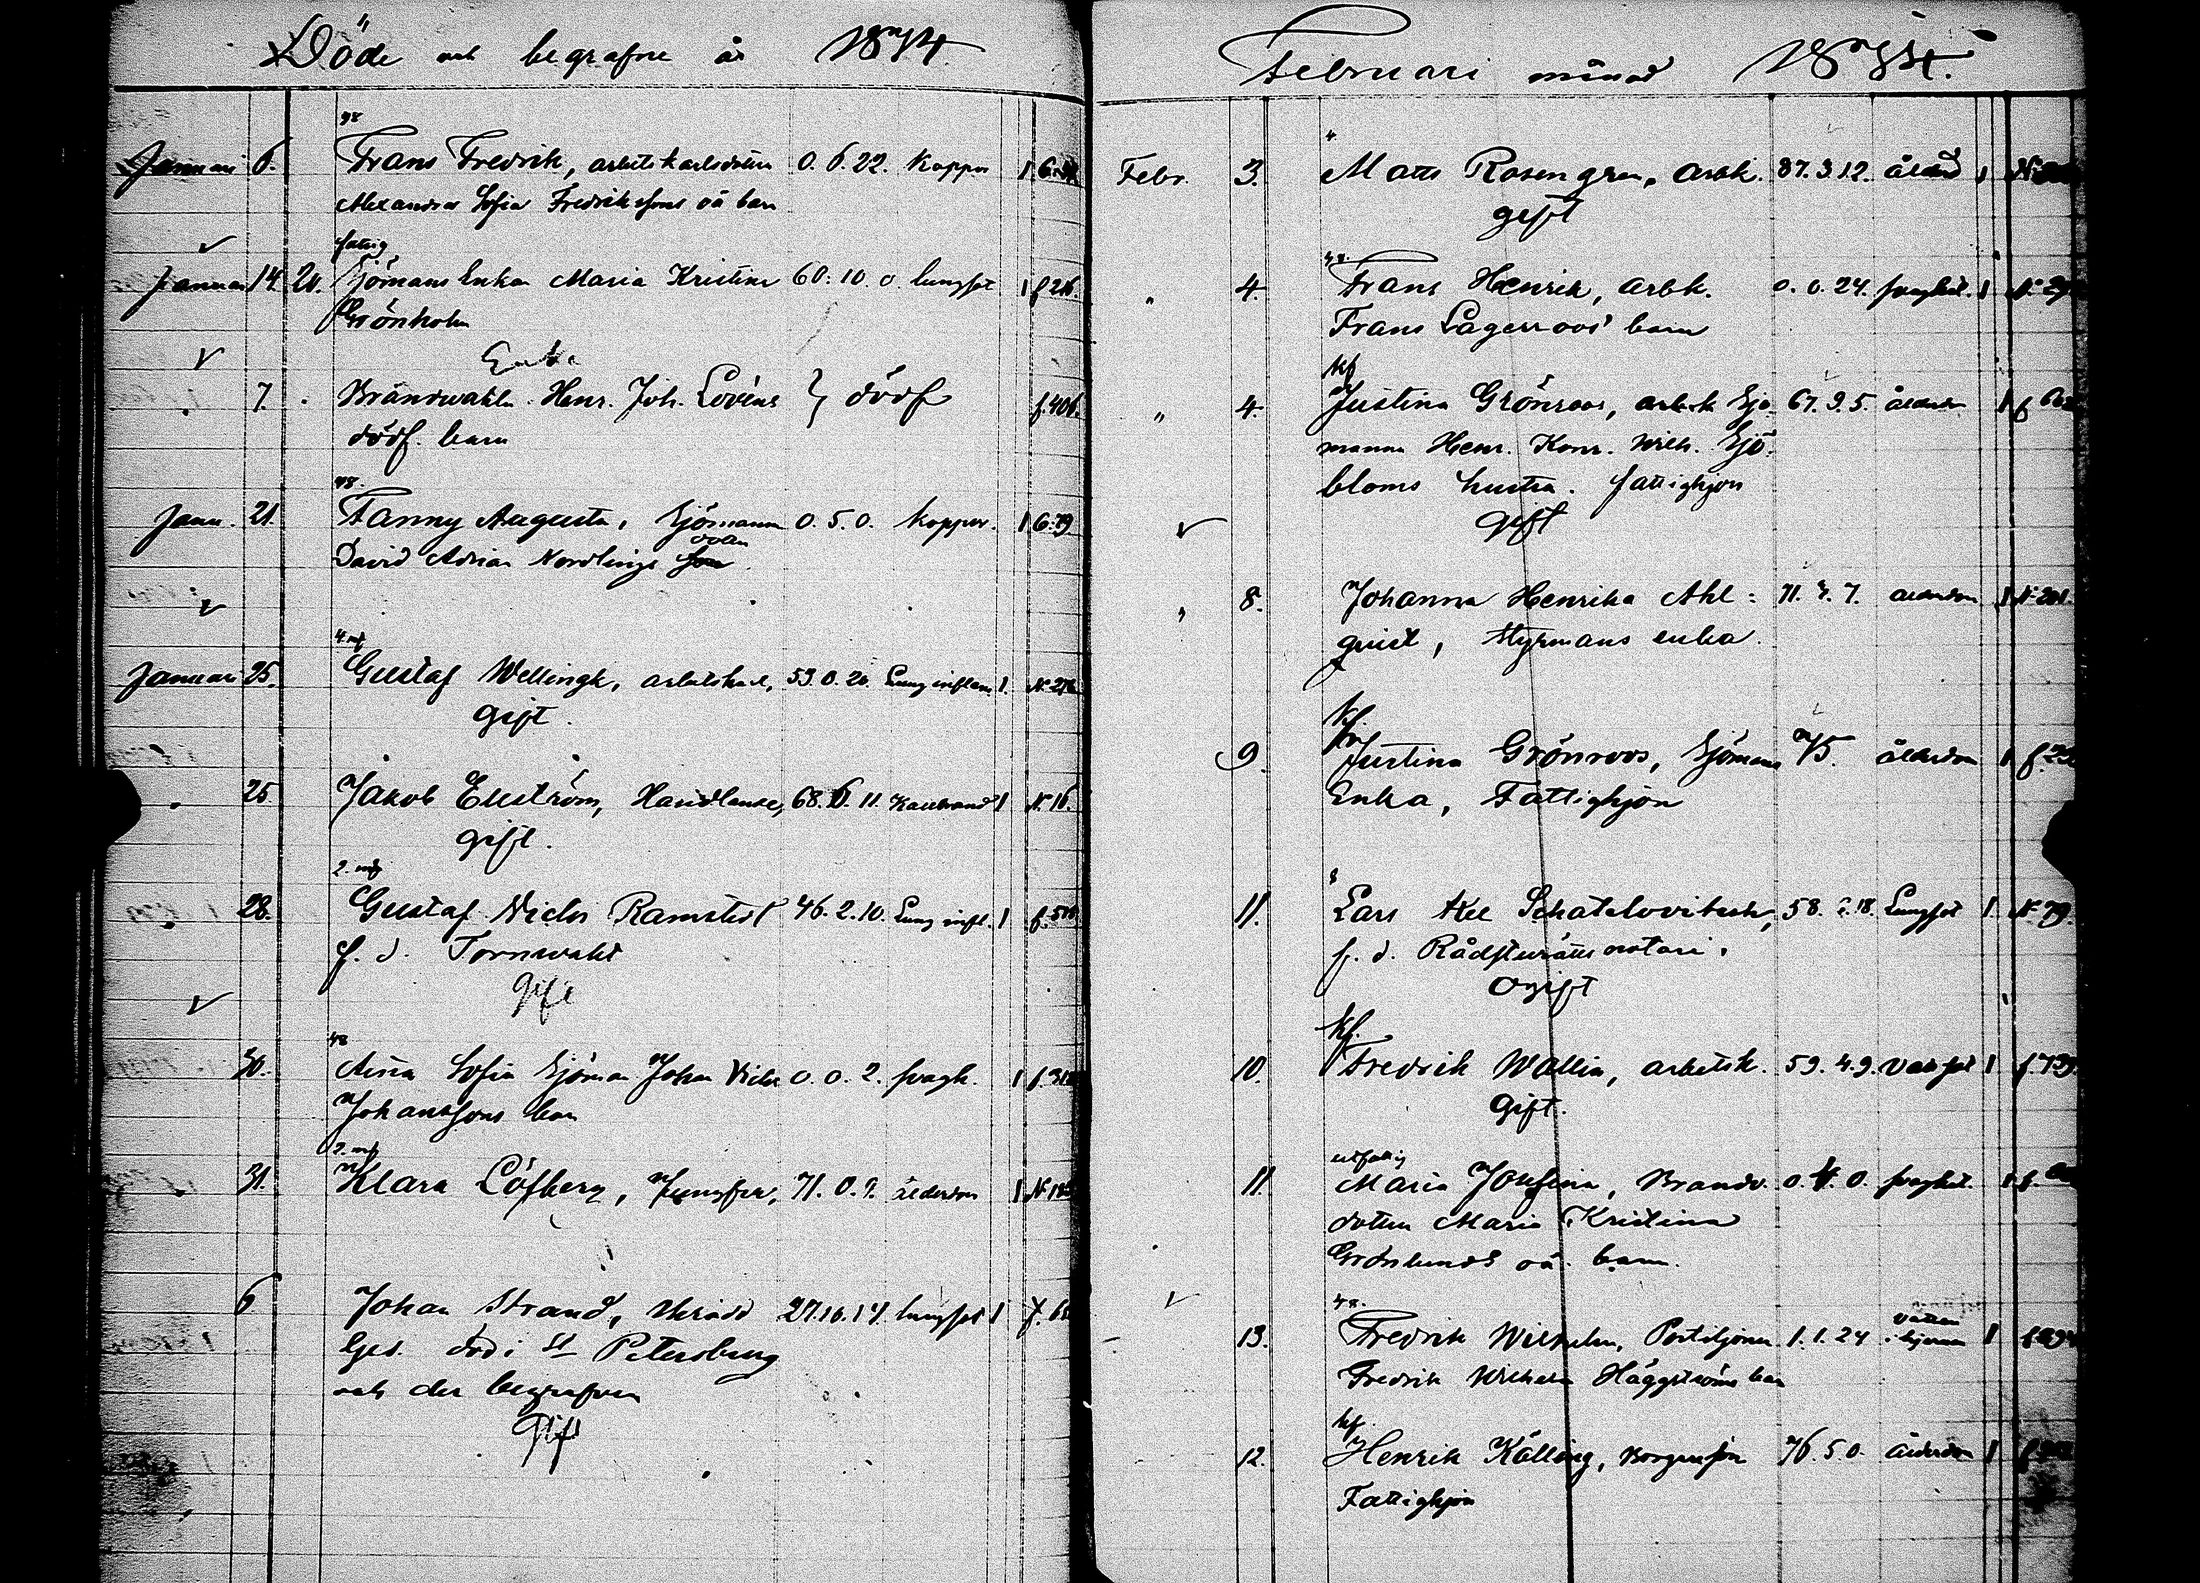 Döde och begrafne år 1874.
98
Januari 6. Frans Fredrik, arbetskarlsdottern 0. 6. 22. Koppor 1
Alexandra Sofia Fredrikssons oä barn
fattig
Januari 14. 20. Sjömans Enkan Maria Kristina 60. 10. 0. lungsot 1 f 216.
Grönholm
Enka
7. Brandvakten Henr. Joh. Lovéns } dödf
dödf. barn
48.
Janu. 21. Fanny Augusta, Sjömann 0. 5. 0. koppor. 1 G. 79
dotter
David Adrian Nordlings son
4 mf
Januari 25. Gustaf Wellingk, arbetskarl, 59. 0. 20. Lunginflam 1.
Gift.
25. Jakob Ekström, Handlande, 68. 6. 11. Kallbrand 1 N. 16.
gift.
2. mf
28. Gustaf Victor Ramstedt 46. 2. 10. Lung infl. 1
f. d. Tornvakt
Gift
48
30. Aina Sofia Sjöman Johan Victor 0. 0. 2. svagh. 1
Johanssons barn
2. mf
31. Klara Löfberg, Jungfru, 71. 0. 9. ålderdom 1
6 Johan Strand, skrädd 27. 10. 14. lungsot 1
Ges. död i St Petersburg
och der begrafven
Gift
Februari månad 1874.
4
Febr. 3. Matts Rosengren, arbk. 87. 3. 12. ålderd 1
gift
48.
" 4. Frans Henrik, arbk. 0. 0. 24. svaghet. 1
Frans Lagerroos' barn
kf
" 4. Justina Grönroos, arbk Sjö- 67. 9. 5. ålderdom 1
manne Henr. Konr. Wilh. Sjö-
bloms hustru. fattighjon
gift
" 8. Johanna Henrika Ahl- 71. 4. 7. ålderdom 1 N. 201.
quist, styrmans enka.
kf.
9. Justina Grönroos, Sjömans 75. ålderdom 1
Enka, Fattighjon
8
11. Lars Schatelovitsch, 58. 2. 18. Lungsot 1. N. 79.
f. d. Rådsturätts notarie.
Ogift
kf.
10. Fredrik Wallin, arbetsk. 59. 4. 9. Vattsot 1 f. 739.
Gift.
utfattig
11. Maria Josefina, Brandv. 0. 4. 0. svaghet. 1
dottern Maria Kristina
Grönlunds oä. barn.
48.
vatten
13. Fredrik Wilhelm, Postiljonen 1. 1. 24 i hjernan 1
Fredrik Wilhelm Häggströms barn
kf.
12. Henrik Källing, Borgareson 76. 5. 0. ålderdom 1
Fattighjon